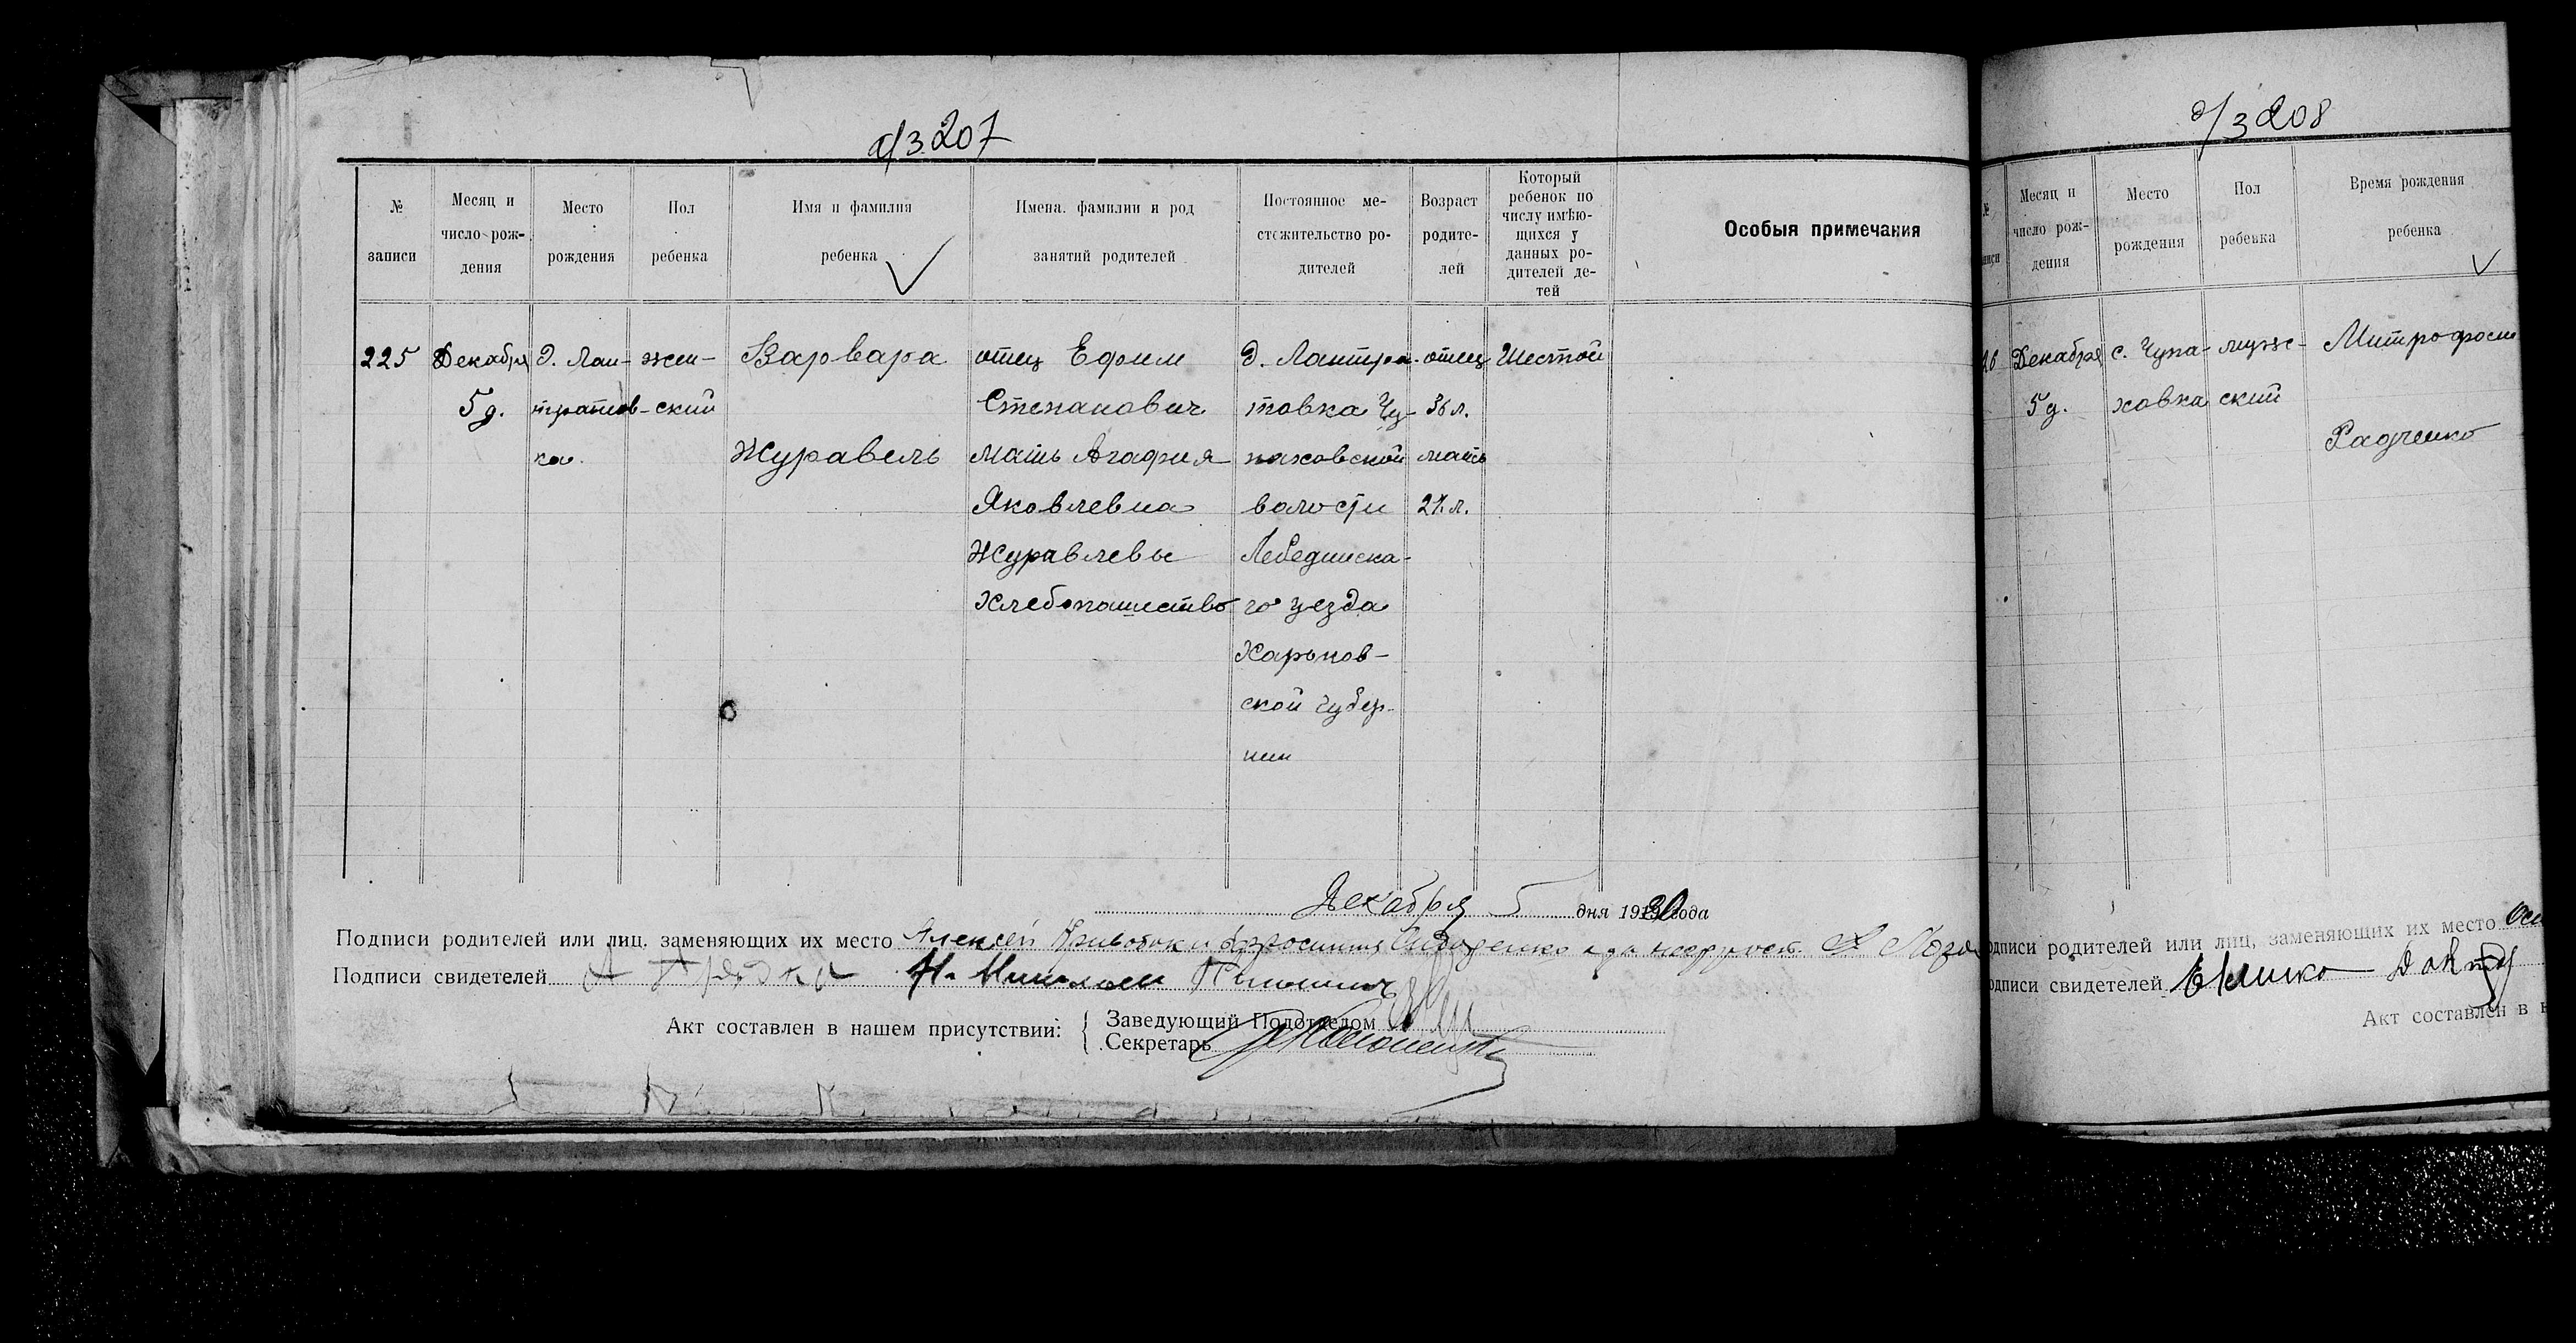 а/з 207
№ записи
Месяц и число рож- дения
Место рождения
Пол ребенка
Имя и фамилия ребенка
Имена. фамилии и род занятий родителей
Постоянное ме- стожительство ро- дителей
Возраст родите- лей
Который ребенок по числу имѣю- щихся у данных ро- дителей де- тей
Особыя примечания
225
Декабря
5 д.
д. Лан-
тратов-
ка.
жен-
ский
Варвара
Журавель
отец Ефим
Степанович
мать Агафия
Яковлевна
Журавлевы
Хлебопашество
д. Лантра-
товка Чу-
паховской
волости
Лебединска-
го уезда
Харьков-
ской губер-
нии
отец
36 л.
мать
Шестой
Декабря 5 дня 1920 года
Подписи родителей или лиц. заменяющих их место Алексей
Подписи свидетелей
Акт составлен в нашем присутствии:
Заведующий Подотделом
Секретарь
а/з 208
Месяц и число рож- дения
Место рождения
Пол ребенка
Время рождения ребенка
Декабря
5 д.
с. Чупа-
ховка
муж-
ский
Митрофан
Радченко
одписи родителей или лиц, заменяющих их место
одписи свидетелей
Акт составлен в